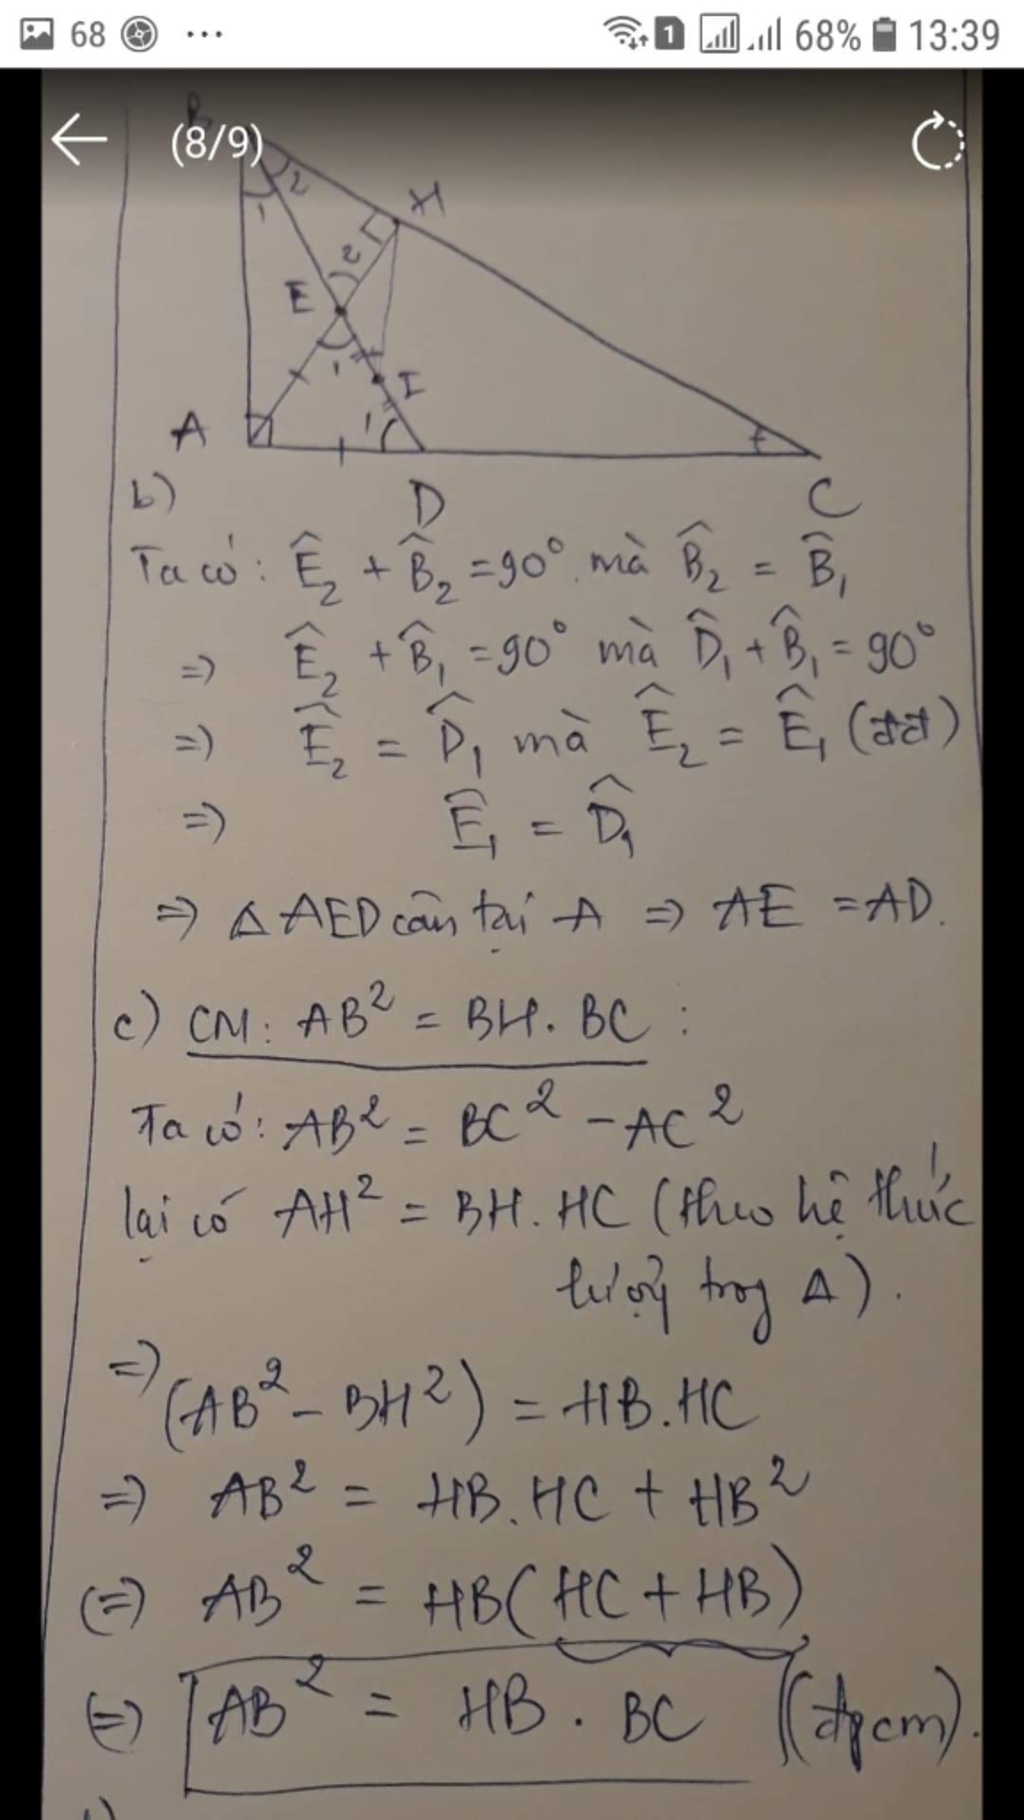 68 ... 1 68% 13:39
(8/9)
B
1 2
H
2
E
1
I
A
1
D
C
b)
Ta có: Ê₂ + B̂₂ = 90° mà B̂₂ = B̂₁
=> Ê₂ + B̂₁ = 90° mà D̂₁ + B̂₁ = 90°
=> Ê₂ = D̂₁ mà Ê₂ = Ê₁ (đđ)
=> Ê₁ = D̂₁
=> Δ AED cân tại A => AE = AD.
c) CM: AB² = BH. BC :
Ta có: AB² = BC² - AC²
lại có AH² = BH. HC (theo hệ thức
lượng trong Δ).
=> (AB² - BH²) = HB.HC
=> AB² = HB.HC + HB²
(=) AB² = HB(HC + HB)
(=) AB² = HB . BC (đpcm).